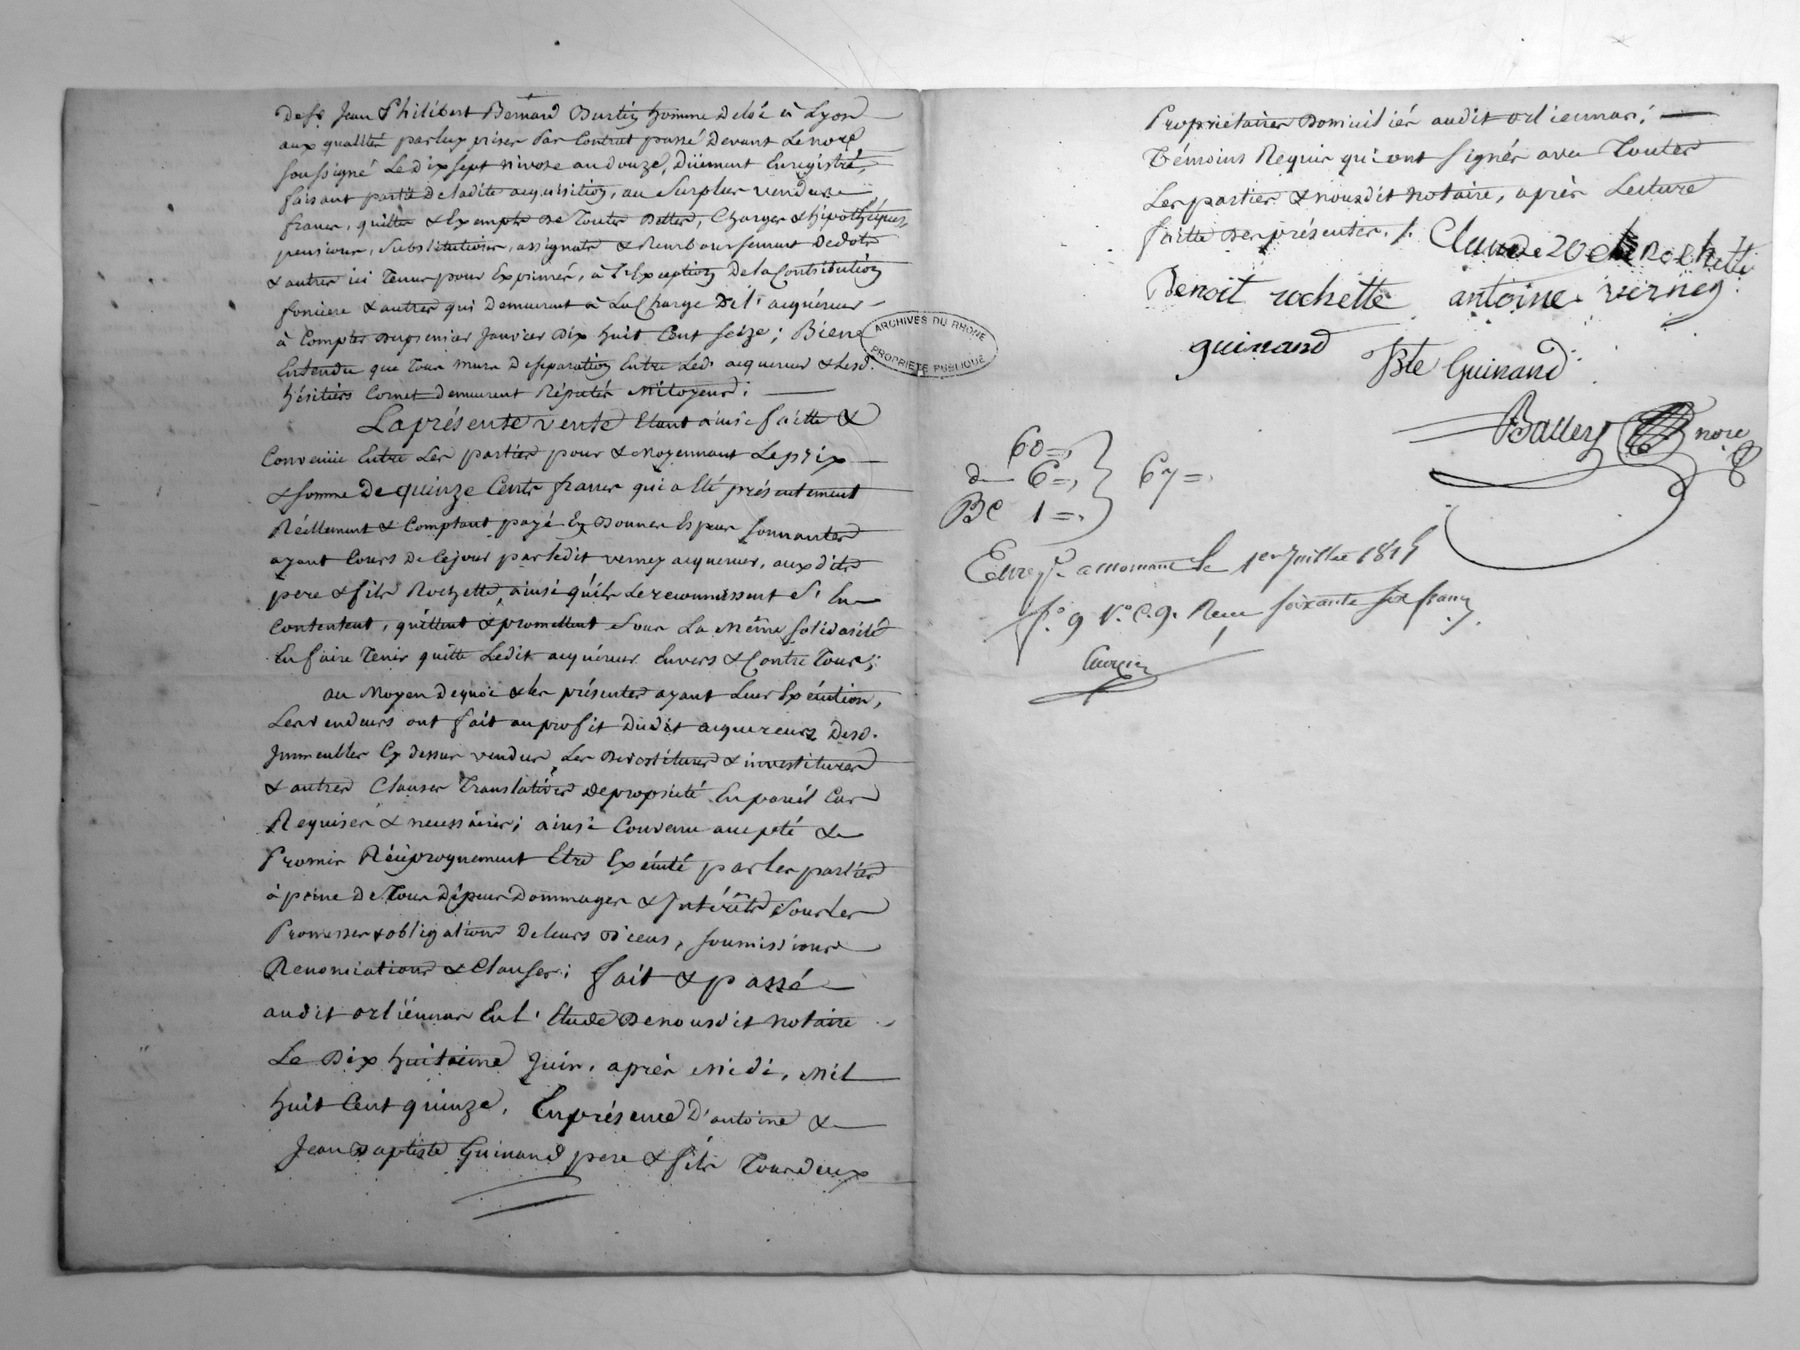 De Sr Jean Philibert Bernard Burtin homme de loi à Lyon
aux qualités par lux prises Par Contrat passé Devant Le nore
soussigné Le dix sept nivose an douze, Düement Enregistré,
faisant partie De ladite acquisition, au Surplus vendue
franc, quitte & Exempte De Toutes Dettes, Charges & hipothèques,
pensions, Substitutions, assignats & Remboursement De dots
& autres ici Tenus pour Exprimés, à l'Exception De la Contribution
fonciere & autres qui Demeurent à La Charge De l'acquéreur
à Compter Du premier Janvier Dix huit Cent seize; Bien
Entendu que Tous murs De séparation Entre Led. acquereur & Lesd.
héritiers Cornet demeurent Réputés Mitoyens;
La présente vente Etant ainsi faitte &
Convenüe Entre Les parties pour & Moyennant Le prix
& somme De quinze Cents francs qui a Eté présentement
Réellement & Comptant payé En Bonnes Especes sonnantes
ayant Cours De Ce jour par ledit verney acquereur, aux dits
pere & fils Rochette, ainsi qu'ils Le reconnoissent S'En
Contentent, quittent & promettent Sous La Même solidarité
En faire Tenir quitte Ledit acquéreur Envers & Contre Tous;
au Moyen De quoi & les présentes ayant Leur Exécution,
Les vendeurs ont fait au profit Dudit acquereur Desd.
Immeubles Cy dessus vendus, Les Devestitures & investitures
& autres Clauses Translatives De propriété En pareil Cas
Requises & necessaires; ainsi Convenu accepté &
Promis Réciproquement Etre Exécuté par les parties
à peine De Tous Dépens Dommages & Intérêts Sous les
Promesses & obligations De leurs Biens, soumissions
Renonciations & Clauses; fait & passé
audit orliénnas En l'Etude De nousdit Notaire
Le Dix huitieme Juin, après Midi, Mil
huit Cent quinze, En présence D'antoine &
Jean Baptiste Guinand pere & fils Tous deux
Propriétaires Domiciliés audit orliennas;
Témoins Requis qui ont signés avec Toutes
Les parties & nousdit Notaire, après Lecture
faitte Des présentes ./.
Claude Rochette
Benoit rochette antoine verney
guinand Jbte Guinand
Balley nore
60 =,
d— 6 =, 67 =.
De 1 =.
Enregé. a mornant le 1er Juillet 1815
fo. 9 Vo. C. 9. Recu soixante six francs
ARCHIVES DU RHONE
PROPRIÉTÉ PUBLIQUE